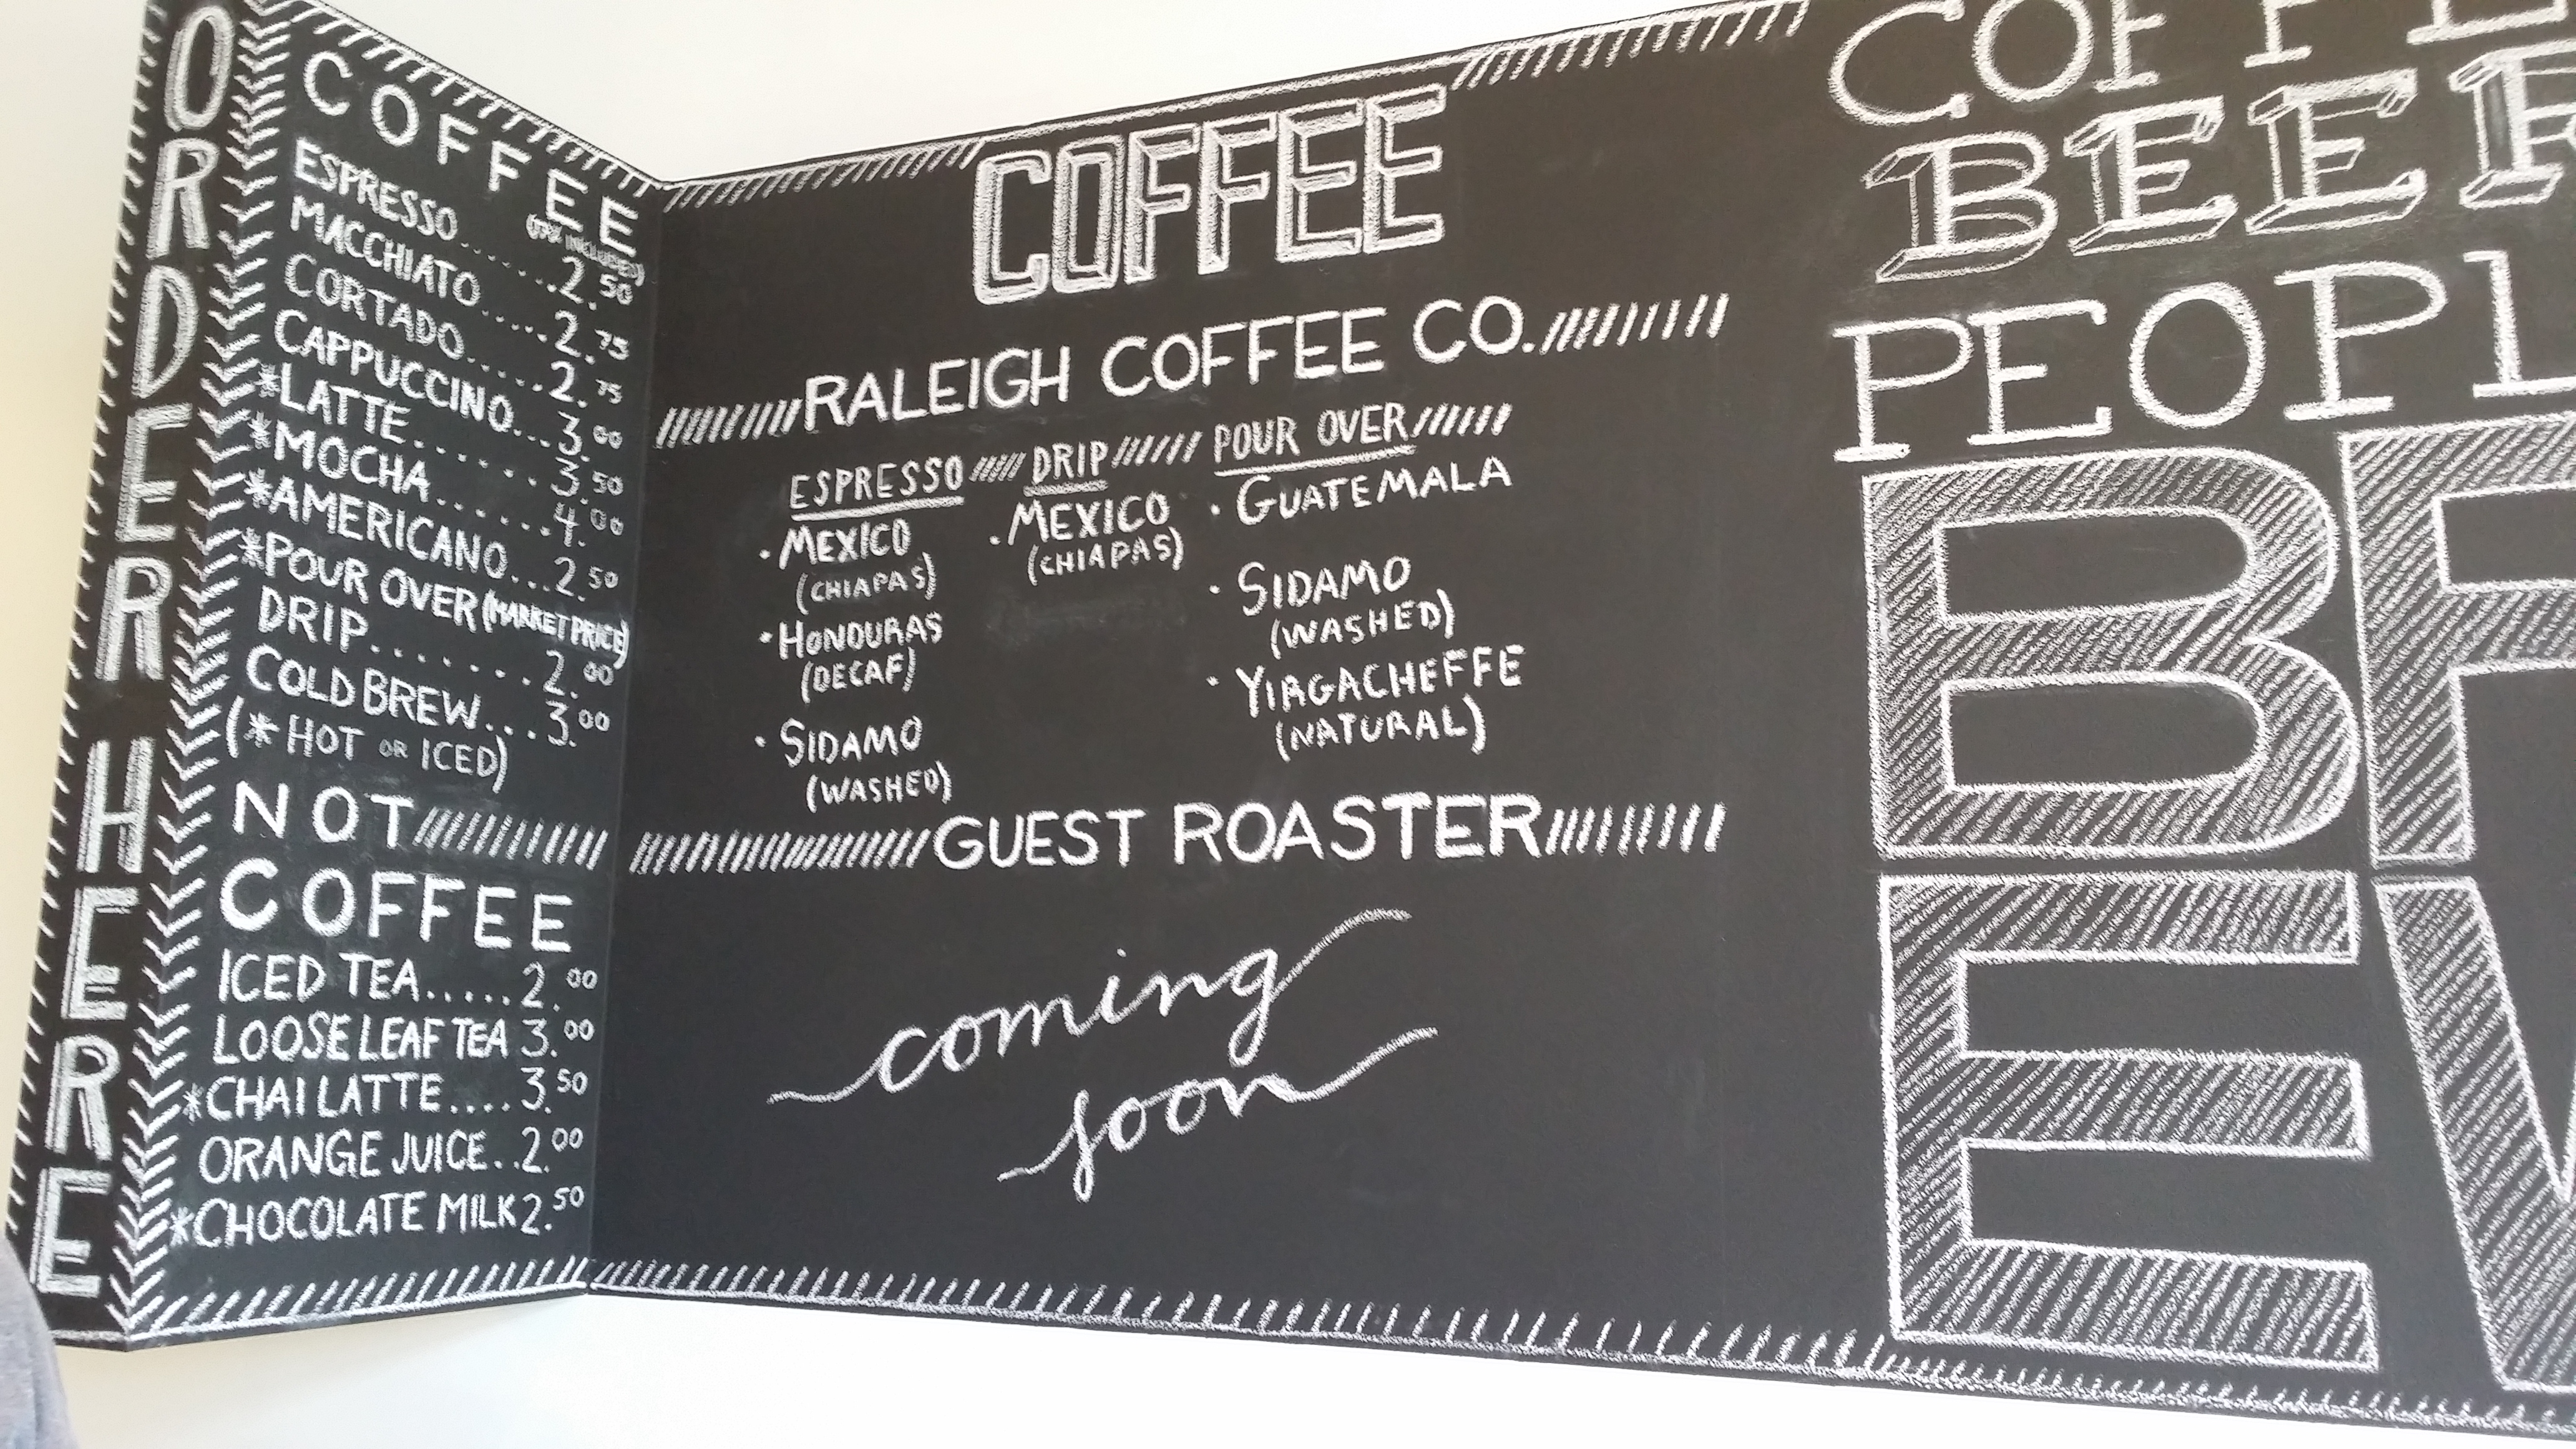 ORDER HERE
COFFEE
(TAX INCLUDED)
ESPRESSO.......2.50
MACCHIATO.....2.75
CORTADO......2.75
CAPPUCCINO...3.00
*LATTE.......3.50
*MOCHA.......4.00
*AMERICANO...2.50
*POUR OVER (MARKET PRICE)
DRIP.......2.00
COLD BREW...3.00
(*HOT OR ICED)
NOT
COFFEE
ICED TEA.....2.00
LOOSE LEAF TEA 3.00
*CHAI LATTE....3.50
ORANGE JUICE..2.00
*CHOCOLATE MILK 2.50
COFFEE
RALEIGH COFFEE CO.
ESPRESSO DRIP POUR OVER
· MEXICO
(CHIAPAS)
· HONDURAS
(DECAF)
· SIDAMO
(WASHED)
· MEXICO
(CHIAPAS)
· GUATEMALA
· SIDAMO
(WASHED)
· YIRGACHEFFE
(NATURAL)
GUEST ROASTER
coming
soon
COFFE
BEER
PEOPL
BR
EW